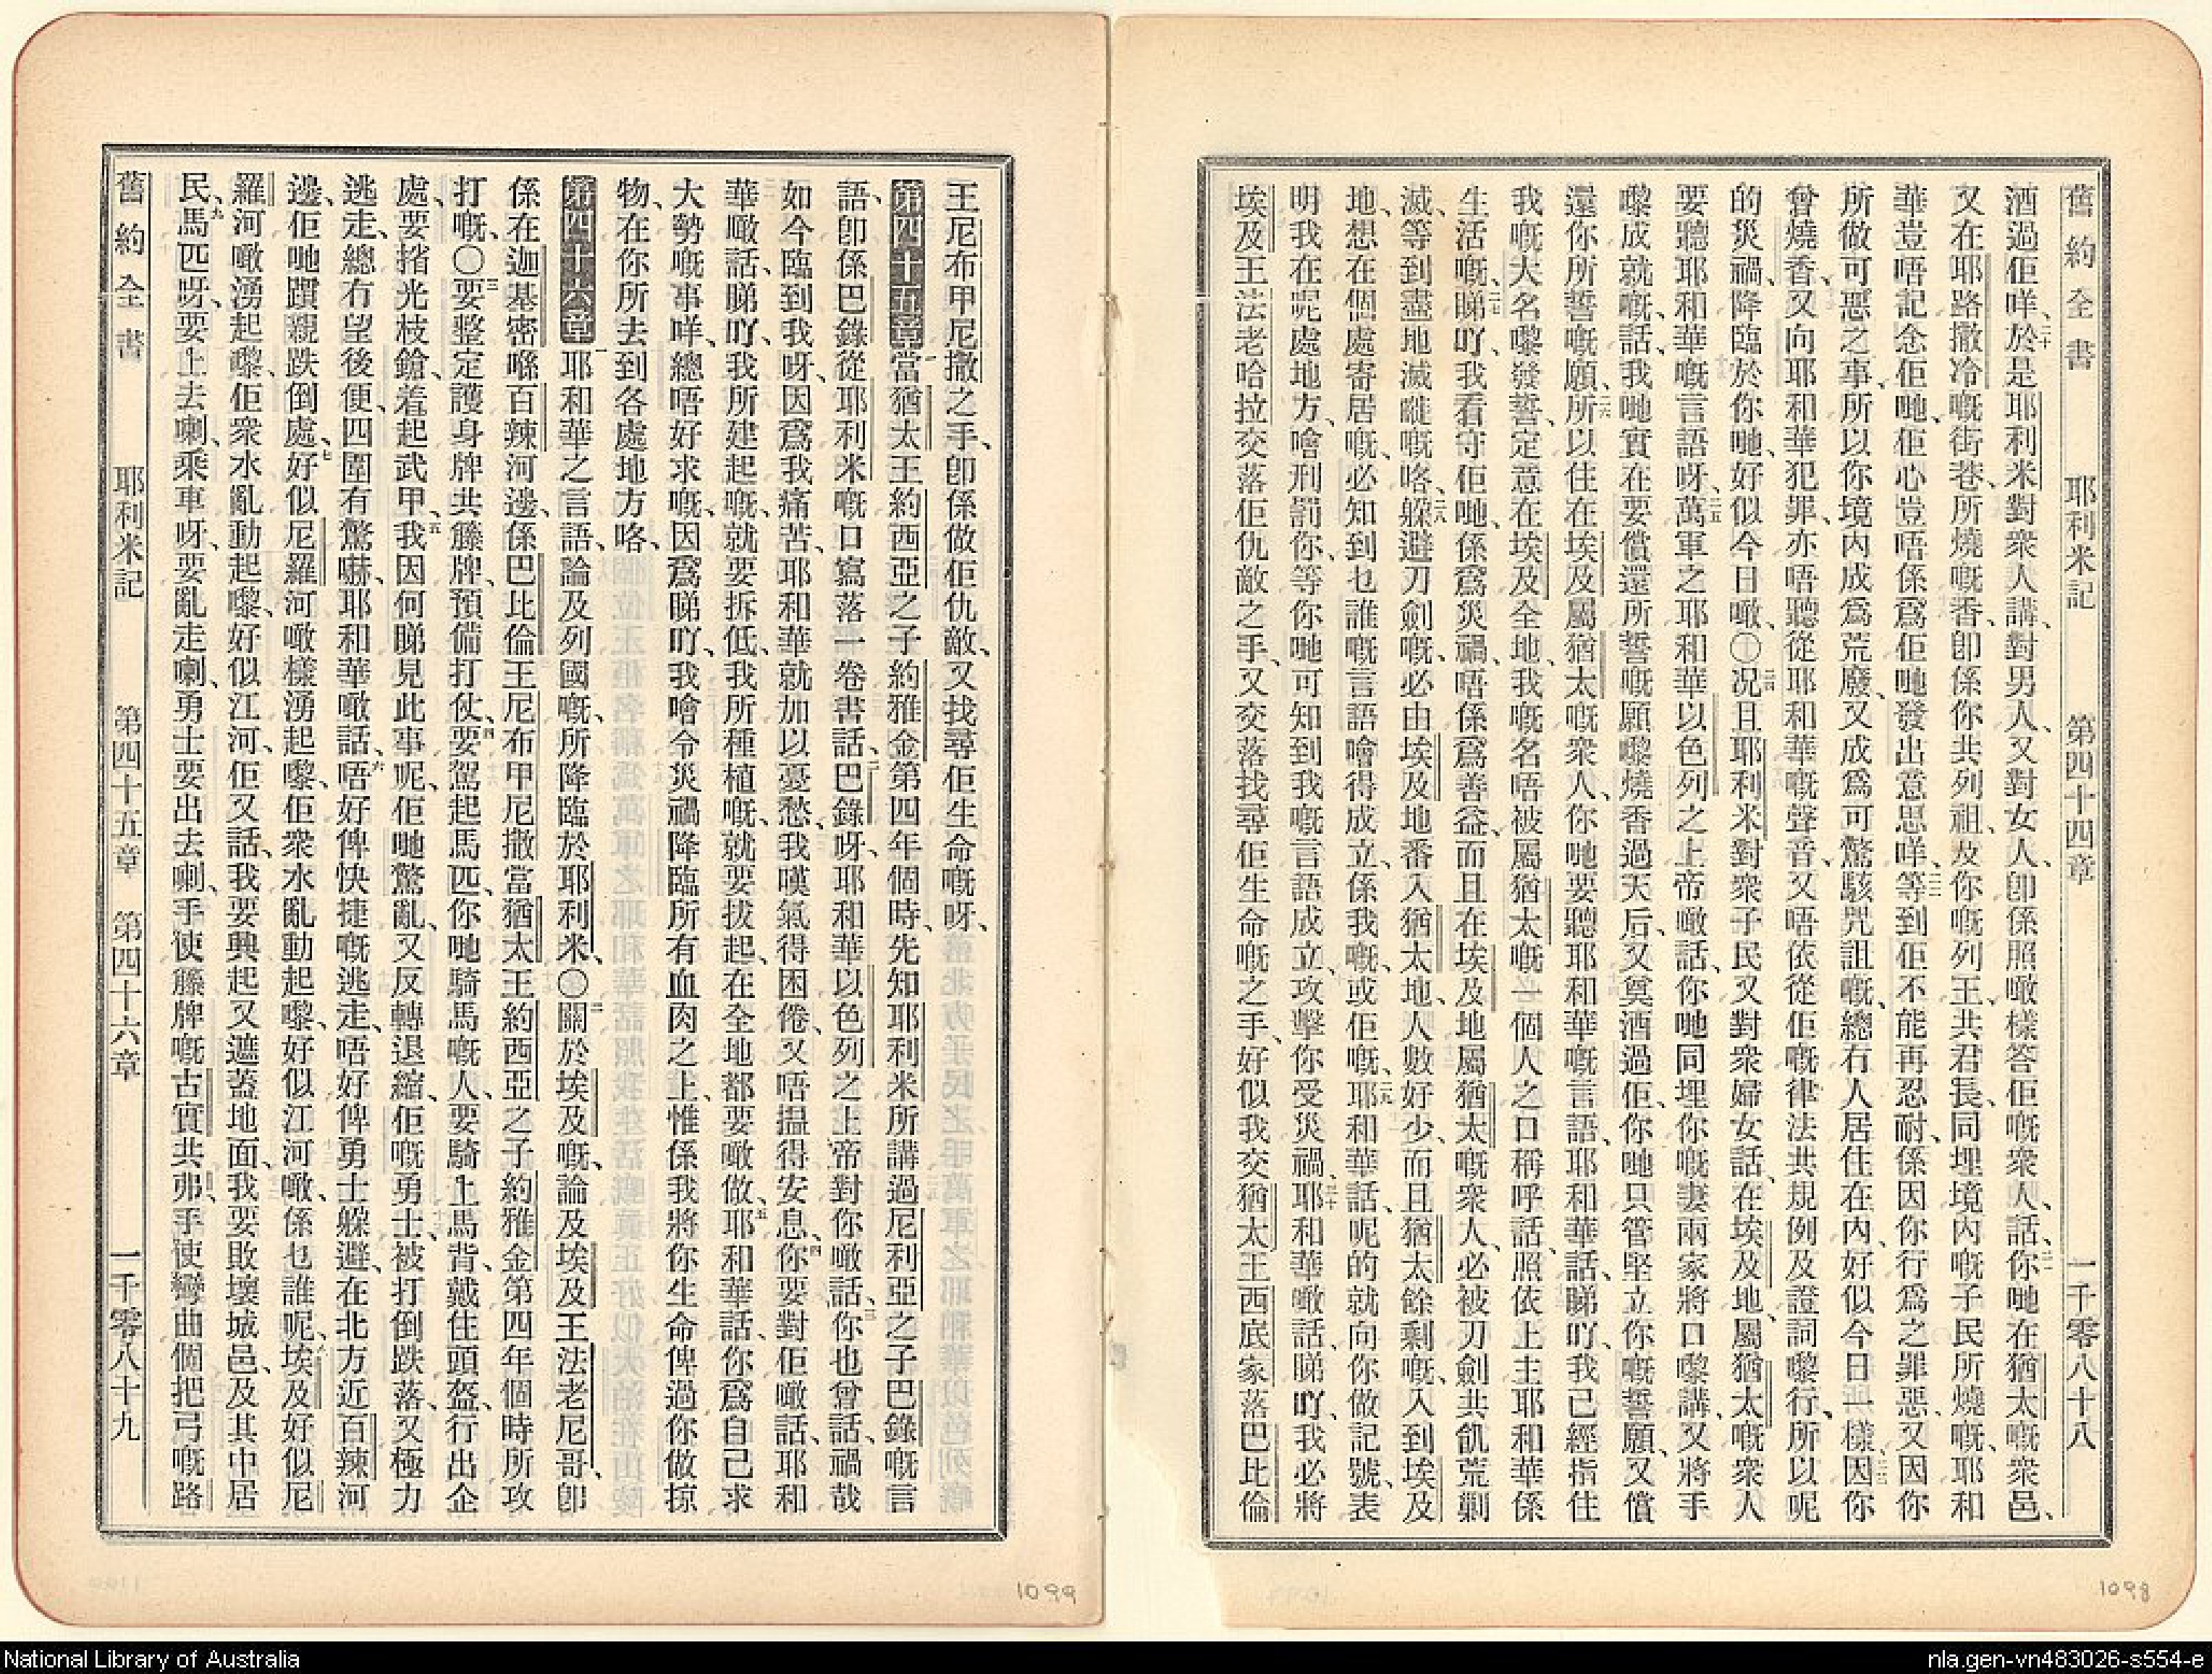 舊約全書 耶利米記 第四十四章 一千零八十八
酒過佢咩、二十於是耶利米對衆人講、對男人、又對女人、卽係照噉樣答佢嘅衆人、話、二一你哋在猶太嘅衆邑、
又在耶路撒冷嘅街巷、所燒嘅香、卽係你共列祖、及你嘅列王、共君長、同埋境內嘅子民所燒嘅、耶和
華豈唔記念佢哋、佢心豈唔係爲佢哋發出意思咩、二二等到佢不能再忍耐、係因你行爲之罪惡、又因你
所做可惡之事、所以你境內成爲荒廢、又成爲可驚駭咒詛嘅、總冇人居住在內、好似今日一樣、二三因你
曾燒香、又向耶和華犯罪、亦唔聽從耶和華嘅聲音、又唔依從佢嘅律法共規例及證詞嚟行、所以呢
的災禍、降臨於你哋、好似今日噉、〇二四况且耶利米對衆子民、又對衆婦女話、在埃及地、屬猶太嘅衆人
要聽耶和華嘅言語呀、二五萬軍之耶和華以色列之上帝噉話、你哋同埋你嘅妻兩家將口嚟講、又將手
嚟成就嘅、話、我哋實在要償還所誓嘅願嚟燒香過天后、又奠酒過佢、你哋只管堅立你嘅誓願、又償
還你所誓嘅願、二六所以住在埃及屬猶太嘅衆人、你哋要聽耶和華嘅言語、耶和華話、睇吖、我已經指住
我嘅大名嚟發誓、定意在埃及全地、我嘅名唔被屬猶太嘅一個人之口稱呼話、照依上主耶和華係
生活嘅、二七睇吖、我看守佢哋、係爲災禍、唔係爲善益、而且在埃及地屬猶太嘅衆人、必被刀劍共飢荒剿
滅、等到盡地滅嘥嘅咯、二八躱避刀劍嘅、必由埃及地番入猶太地、人數好少、而且猶太餘剩嘅、入到埃及
地、想在個處寄居嘅、必知到乜誰嘅言語噲得成立、係我嘅、或佢嘅、二九耶和華話、呢的就向你做記號、表
明我在呢處地方、噲刑罰你、等你哋可知到我嘅言語成立、攻擊你受災禍、三十耶和華噉話、睇吖、我必將
埃及王法老哈拉交落佢仇敵之手、又交落找尋佢生命嘅之手、好似我交猶太王西底家落巴比倫
王尼布甲尼撒之手、卽係做佢仇敵、又找尋佢生命嘅呀、
第四十五章 一當猶太王約西亞之子約雅金第四年個時、先知耶利米所講過尼利亞之子巴錄嘅言
語、卽係巴錄從耶利米嘅口寫落一卷書話、二巴錄呀、耶和華以色列之上帝對你噉話、三你也曾話、禍哉
如今臨到我呀、因爲我痛苦、耶和華就加以憂愁、我嘆氣得困倦、又唔搵得安息、四你要對佢噉話、耶和
華噉話、睇吖、我所建起嘅、就要拆低、我所種植嘅、就要拔起、在全地都要噉做、五耶和華話、你爲自己求
大勢嘅事咩、總唔好求嘅、因爲睇吖、我噲令災禍降臨所有血肉之上、惟係我將你生命俾過你做掠
物、在你所去到各處地方咯、
第四十六章 一耶和華之言語、論及列國嘅、所降臨於耶利米、〇二關於埃及嘅、論及埃及王法老尼哥、卽
係在迦基密喺百辣河邊、係巴比倫王尼布甲尼撒當猶太王約西亞之子約雅金第四年個時所攻
打嘅、〇三要整定護身牌共籐牌、預備打仗、四要駕起馬匹、你哋騎馬嘅人、要騎上馬背、戴住頭盔、行出企
處、要揩光枝鎗、着起武甲、五我因何睇見此事呢、佢哋驚亂、又反轉退縮、佢嘅勇士、被打倒跌落、又極力
逃走、總冇望後便、四圍有驚嚇、耶和華噉話、六唔好俾快捷嘅逃走、唔好俾勇士躱避、在北方近百辣河
邊、佢哋躓親跌倒處、七好似尼羅河噉樣湧起嚟、佢衆水亂動起嚟、好似江河噉、係乜誰呢、八埃及好似尼
羅河噉湧起嚟、佢衆水亂動起嚟、好似江河、佢又話、我要興起又遮蓋地面、我要敗壞城邑、及其中居
民、九馬匹呀、要上去喇、乘車呀、要亂走喇、勇士要出去喇、手使籐牌嘅古實共弗、手使彎曲個把弓嘅路
舊約全書 耶利米記 第四十五章 第四十六章 一千零八十九
1099
1098
National Library of Australia
nla.gen-vn483026-s554-e